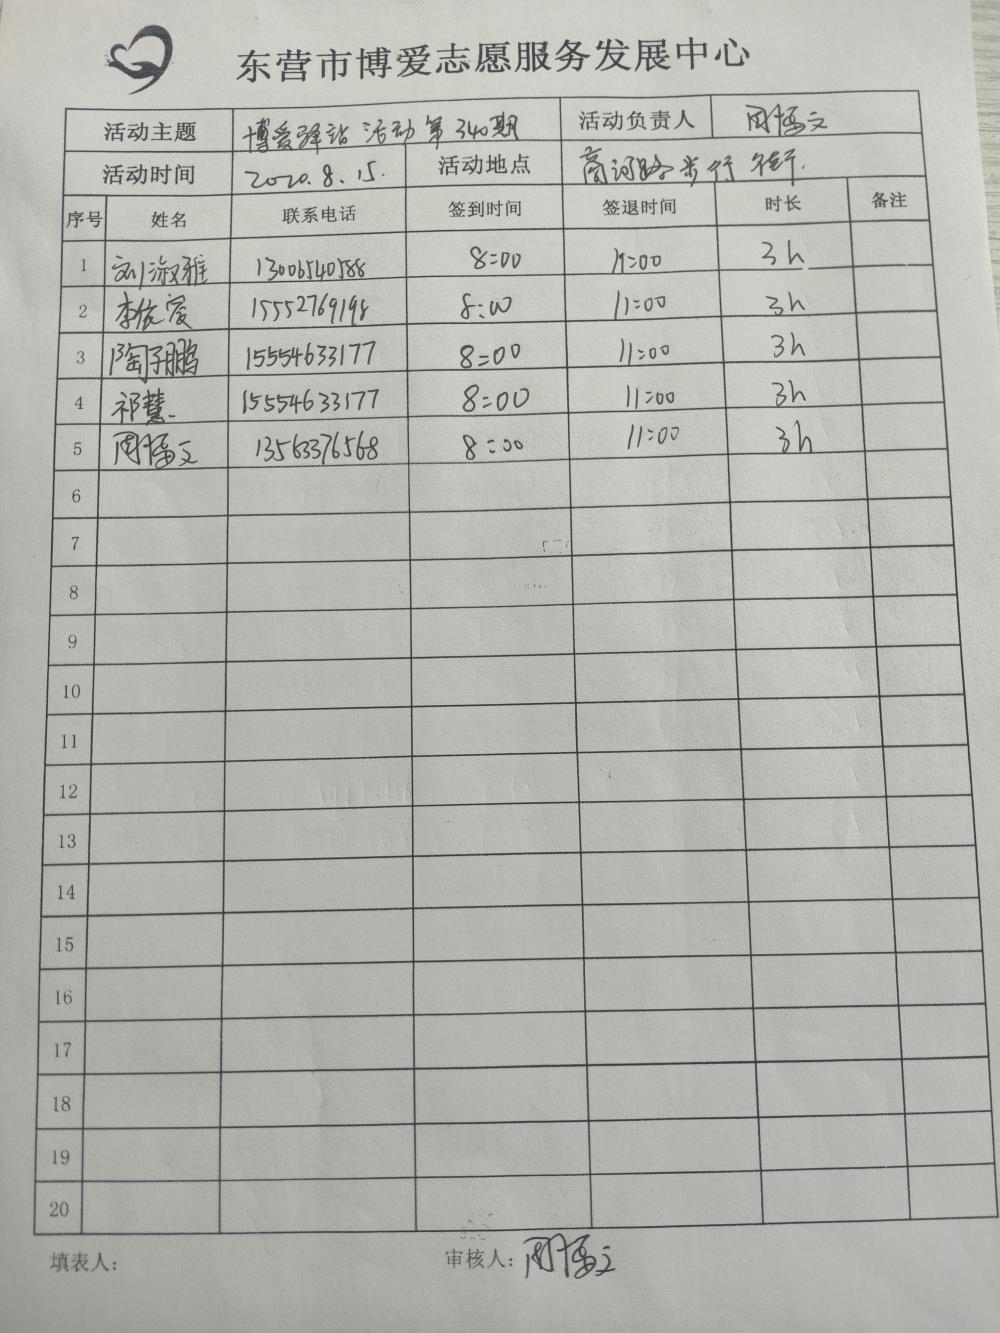 东营市博爱志愿服务发展中心
活动主题 博爱驿站活动第340期 活动负责人 周博文
活动时间 2020.8.15. 活动地点 商河路步行街.
序号 姓名 联系电话 签到时间 签退时间 时长 备注
1 刘淑雅 13006540588 8:00 11:00 3h
2 李俊 15552769198 8:00 11:00 3h
3 陶子鹏 15554633177 8:00 11:00 3h
4 祁慧 15554633177 8:00 11:00 3h
5 周博文 13563376568 8:00 11:00 3h
6
7
8
9
10
11
12
13
14
15
16
17
18
19
20
填表人: 审核人: 周博文